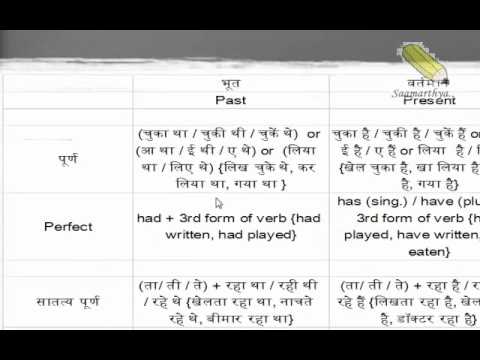 Saamarthya
भूत
वर्तमान
Past
Present
पूर्ण
(चुका था / चुकी थी / चुकें थे) or
(आ था / ई थी / ए थे) or (लिया
था / लिए थे) {लिख चुके थे, कर
लिया था, गया था }
चुका है / चुकी है / चुकें हैं or
ई है / ए हैं or लिया है /
{खेल चुका है, खा लिया है
है, गया है}
Perfect
had + 3rd form of verb {had
written, had played}
has (sing.) / have (plu
3rd form of verb {h
played, have written,
eaten}
सातत्य पूर्ण
(ता/ ती / ते) + रहा था / रही थी
/ रहे थे {खेलता रहा था, नाचते
रहे थे, बीमार रहा था}
(ता/ ती / ते) + रहा है /
रहे हैं {लिखता रहा है, खेल
है, डॉक्टर रहा है}